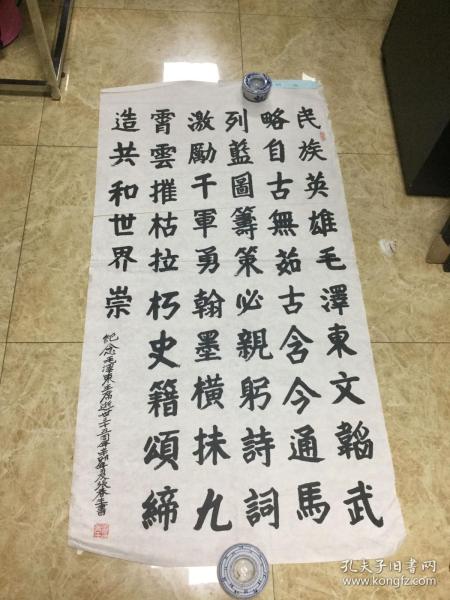 民族英雄毛澤東文韜武
略自古無茹古含今通馬
列藍圖籌策必親躬詩詞
激勵千軍勇翰墨橫抹九
霄雲摧枯拉朽史籍頌締
造共和世界崇
紀念毛澤東主席逝世三十五周年辛卯年春生書
孔夫子旧书网
www.kongfz.com